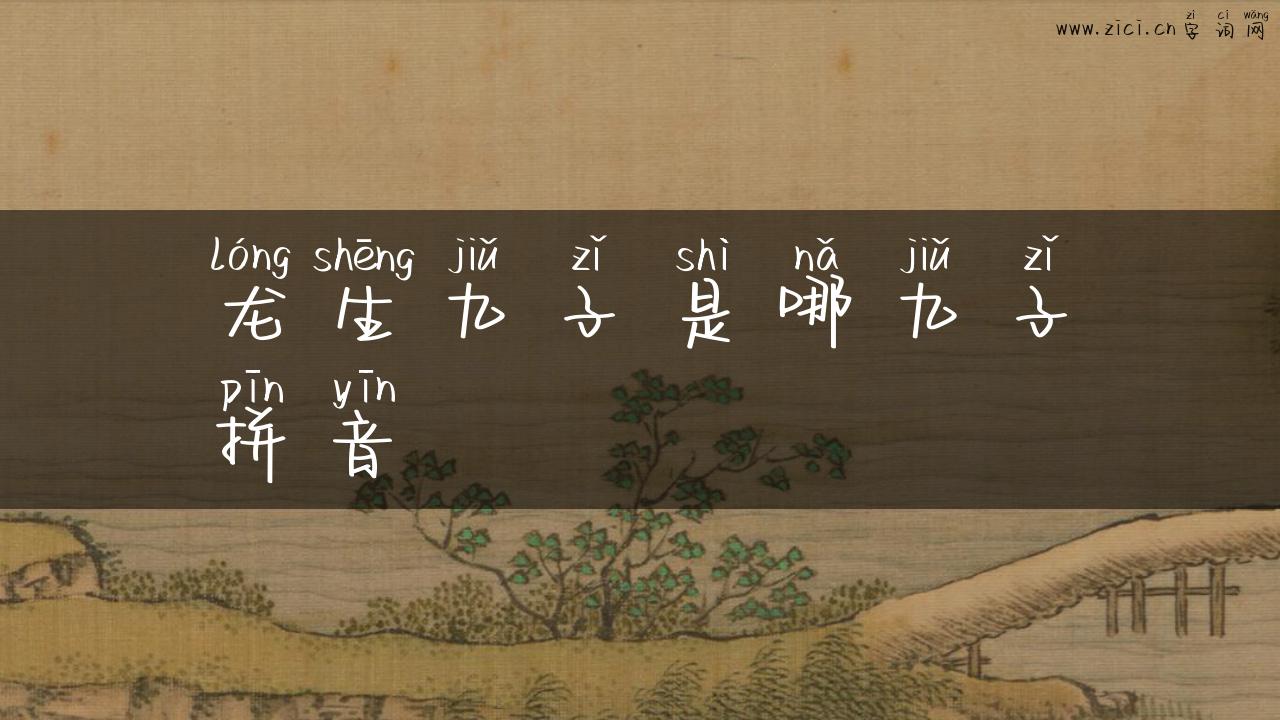 zì cí wǎng
www.zici.cn 字 词 网
lóng shēng jiǔ zǐ shì nǎ jiǔ zǐ
龙 生 九 子 是 哪 九 子
pīn yīn
拼 音